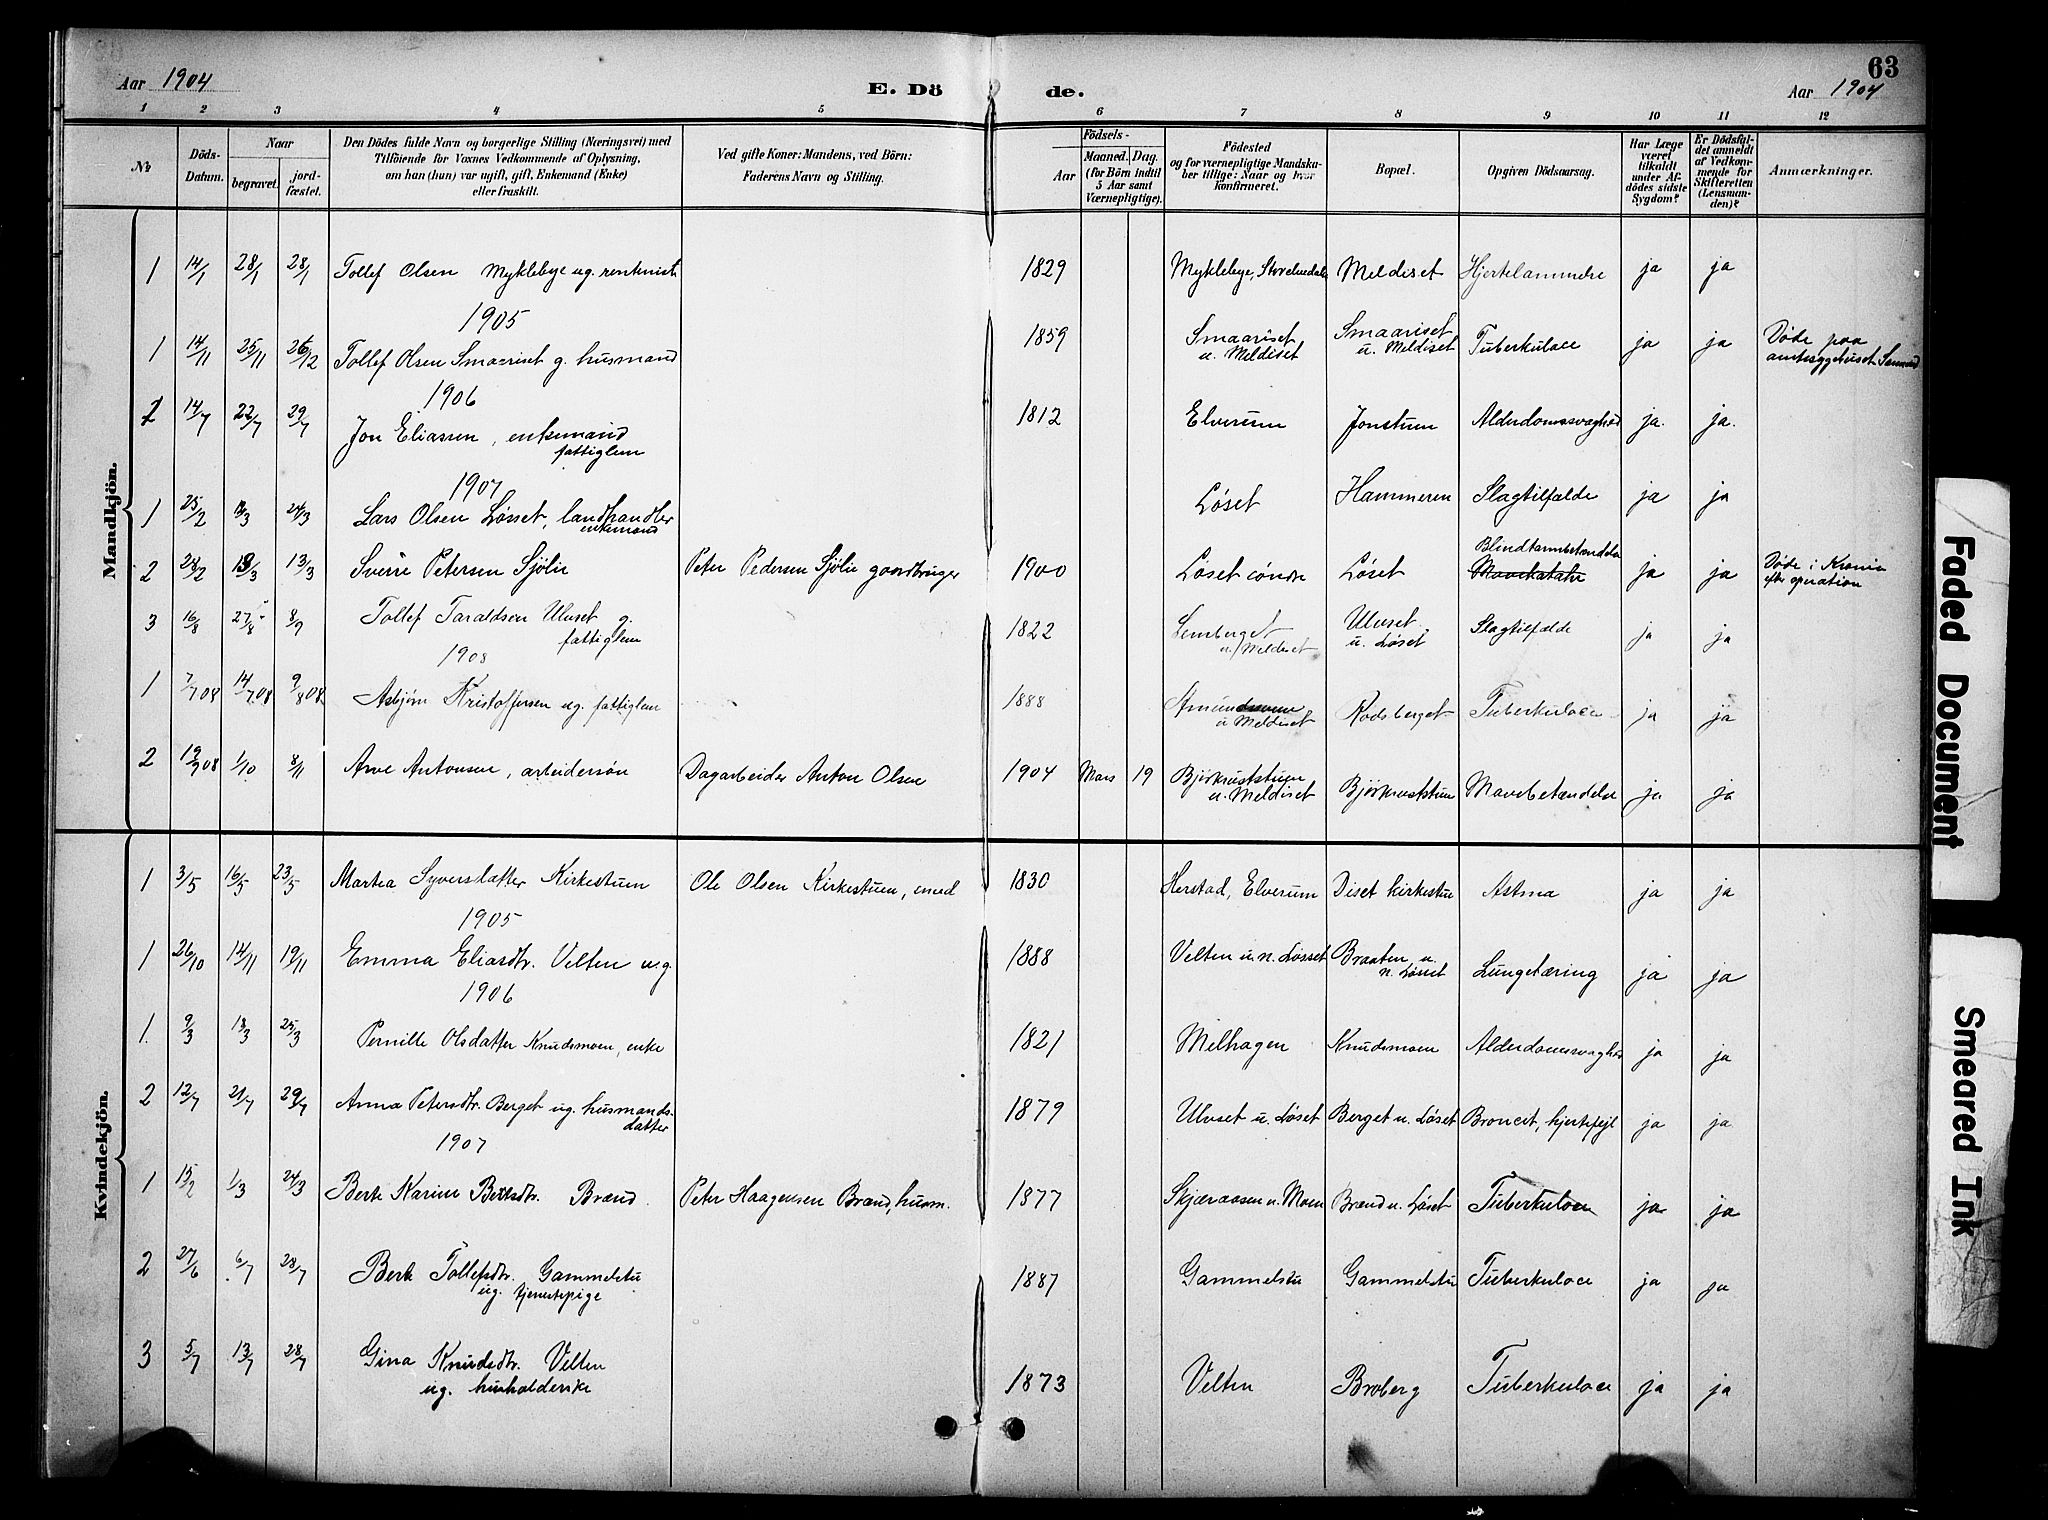 Aar 1904
E. Dö de.
63
Aar 1904
1 2 3 4 5 6 7 8 9 10 11 12
No
Döds-Datum.
Naar
begravet.
jord-fæstet.
Den Dödes fulde Navn og borgerlige Stilling (Næringsvei) med
Tilföiende for Voxnes Vedkommende af Oplysning,
om han (hun) var ugift, gift, Enkemand (Enke)
eller fraskilt.
Ved gifte Koner: Mandens, ved Börn:
Faderens Navn og Stilling.
Födsels-
Aar
Maaned. Dag.
(for Börn indtil
5 Aar samt
Værnepligtige).
Födested
og for værnepligtige Mandska-
ber tillige: Naar og hvor
konfirmeret.
Bopæl.
Opgiven Dödsaarsag.
Har Læge
været
tilkaldt
under Af-
dödes sidste
Sygdom?
Er Dödsfal-
det anmeldt
af Vedkom-
mende for
Skifteretten
(Lensman-
den)?
Anmærkninger.
Mandkjön.
1 14/1 28/1 28/1 Tollef Olsen Myklebye ug. 1829 Myklebye, Storelvedalen Meldiset Hjertelammelse ja ja
1905
1 14/11 25/11 26/12 Tollef Olsen Smaariset g. husmand 1859 Smaariset u. Meldiset Smaariset u. Meldiset Tuberkuloce ja ja Døde paa
amtssygehuset
1906
14/7 22/7 29/7 Jon Eliassen, enkemand 1812 Elverum Jonstuen Alderdomssvaghed ja. ja.
fattiglem
1907
1 25/2 24/3 Lars Olsen Løsset, landhandler 1907 Løset Hammeren Slagtilfælde ja ja
enkemand
2 28/2 13/3 Sverre Petersen Sjølie Peter Pedersen Sjölie gaardbruger 1900 Løset søndre Løset Blindtarmbetændelse Mavekatahr ja ja Døde i Krania
efter operation
3 16/8 27/8 8/9 Tollef Taraldsen Ulvset g. 1822 u/Meldiset Ulvset u. Løset Slagtilfælde ja ja
fattiglem
1908
1 7/7 08 14/7 08 9/8 08 Asbjørn Kristoffersen ug. fattiglem 1888 u Meldiset Rodsberget Tuberkuloce ja ja
2 19/9 08 1/10 8/11 Arve Antonsen, arbeidersøn Dagarbeider Anton Olsen 1904 Mars 19 Bjørkvststuen u. Meldiset Bjørkvststuen Mavebetændelse ja ja
Kvindekjön.
1 3/5 16/5 23/5 Martea Syversdatter Kirkestuen Ole Olsen Kirkestuen, smed 1830 Herstad, Elverum Diset kirkestu Astma ja ja
1905
1 26/10 14/11 19/11 Emma Eliasdtr. Velten ug. 1888 Velten u. n. Løsset Braaten u. n. Løsset Lungetæring ja ja
1906
1. 9/3 13/3 25/3 Pernille Olsdatter Knudsmoen, enke 1821 Melhagen Knudsmoen Alderdomssvaghed ja ja
2 12/7 21/7 29/7 Anna Petersdtr. Berget ug. husmands- 1879 Ulvset u. Løset Berget u. Løset Broncit, hjertefejl ja ja
datter
1907
1 15/2 1/3 24/3 Berte Karine Bertsdtr. Brænd. Peter Haagensen Brænd, husm. 1877 Skjæraasen u. Moen Brænd u. Løset Tuberkuloce ja ja
2 27/6 6/7 28/7 Berte Tollefsdtr. Gammelstu 1887 Gammelstu Gammelstu Tuberkuloce ja ja
ug. tjenestepige
3 5/7 13/7 28/7 Gina Knudsdtr. Velten 1873 Velten Broberg Tuberkuloce ja ja
ug. husholderske
Faded Document
Smeared Ink